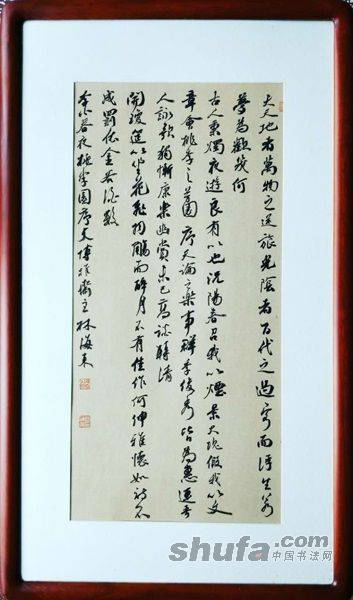 夫天地者萬物之逆旅光陰者百代之過客而浮生若
夢為歡幾何
古人秉燭夜遊良有以也況陽春召我以煙景大塊假我以文
章會桃李之芳園序天倫之樂事群季俊秀皆為惠連吾
人詠歌獨慚康樂幽賞未已高談轉清
開瓊筵以坐花飛羽觴而醉月不有佳作何伸雅懷如詩不
成罰依金谷酒數
李白春夜桃李園序文博雅齋主林海東
shufa.com
中国书法网